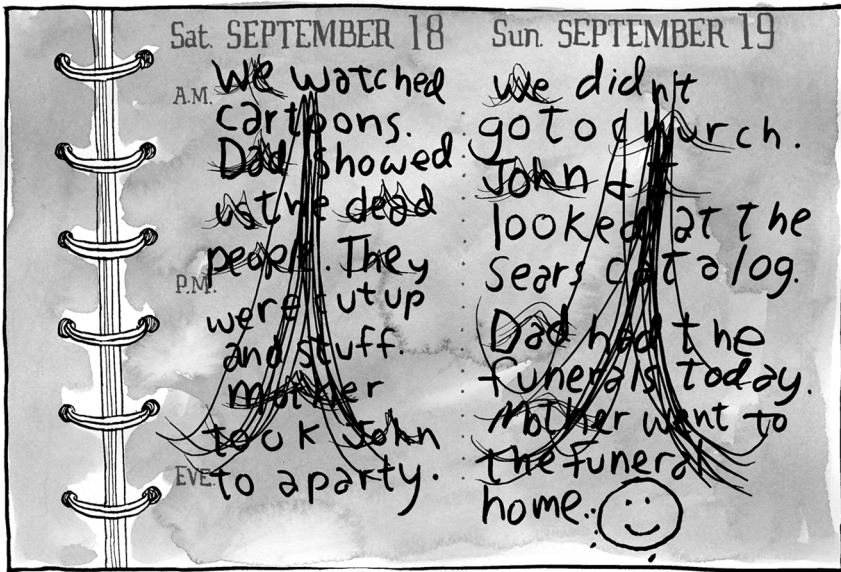 Sat. SEPTEMBER 18
A.M.
We watched
cartoons.
Dad showed
us the dead
people. They
P.M.
were cut up
and stuff.
Mother
took John
EVE.
to a party.
Sun. SEPTEMBER 19
We didn't
go to church.
John & I
looked at the
Sears catalog.
Dad had the
funerals today.
Mother went to
the funeral
home.